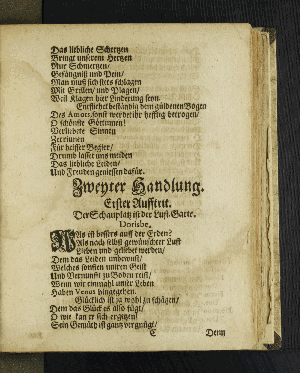 Das liebliche Schertzen
Bringt unserem Hertzen
Nur Schmertzen/
Gefängniß und Pein/
Man muß sich stets schlagen
Mit Grillen/ und Plagen/
Weil Klagen hier Linderung seyn.
Entfliehet beständig dem güldenen Bogen
Des Amors/sonst werdet ihr hefftig betrogen/
O schönste Göttinnen!
Verliebete Sinnen
Zerrinnen
Für heisser Begier/
Drumb lasset uns meiden
Das liebliche Leiden/
Und Freuden geniessen dafür.
Zweyter Handlung.
Erster Aufftrit.
Der Schauplatz ist der Lust-Garte.
Dorisbe.
WAs ist bessers auff der Erden?
Als nach selbst gewünschter Lust
Lieben und geliebet werden/
Dem das Leiden unbewust/
Welches sonsten unsren Geist
Und Vernunfft zu Boden reist/
Wenn wir einmahl unser Leben
Haben Venus hingegeben.
Glücklich ist ja wohl zu schätzen/
Dem das Glück es also fügt/
O wie kan er sich ergetzen/
Sein Gemüth ist gantz vergnügt/
C Denn